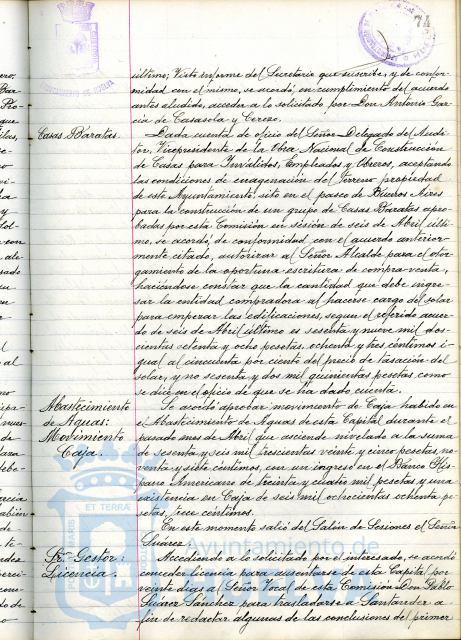 74
último; Visto informe del Secretario que suscribe, y de confor-
midad con el mismo, se acordó, en cumplimiento del acuerdo
antes aludido, acceder a lo solicitado por Don Antonio Gar-
cía de Casasola y Cerezo.
Casas Baratas.
Dada cuenta de oficio del Señor Delegado del Audi-
tor, Vicepresidente de la Obra Nacional de Construcción
de Casas para Inválidos, Empleados y Obreros, aceptando
las condiciones de enagenación del terreno propiedad
de este Ayuntamiento, sito en el paseo de Buenos Aires
para la construcción de un grupo de Casas Baratas apro-
badas por esta Comisión en sesión de seis de Abril últi-
mo, se acordó, de conformidad con el acuerdo anterior-
mente citado, autorizar al Señor Alcalde para el otor-
gamiento de la oportuna escritura de compra-venta,
haciéndose constar que la cantidad que debe ingre-
sar la entidad compradora al hacerse cargo del solar
para empezar las edificaciones, según el referido acuer-
do de seis de Abril último es sesenta y nueve mil dos-
cientas setenta y ocho pesetas, ochenta y tres céntimos i-
gual al cincuenta por ciento del precio de tasación del
solar, y no sesenta y dos mil quinientas pesetas como
se dice en el oficio de que se ha dado cuenta.
Abastecimiento
de Aguas:
Movimiento
Caja.
Se acordó aprobar movimiento de Caja habido en
el Abastecimiento de Aguas de esta Capital durante el
pasado mes de Abril que asciende nivelado a la suma
de sesenta y seis mil trescientas veinte y cinco pesetas, no-
venta y siete céntimos, con un ingreso en el Banco His-
pano Americano de treinta y cuatro mil pesetas y una
existencia en Caja de seis mil ochocientas ochenta pe-
setas, trece céntimos.
En este momento salió del Salón de Sesiones el Señor
Suárez.
Sr. Gestor:
Licencia.
Accediendo a lo solicitado por el interesado, se acordó
conceder licencia para ausentarse de esta Capital por
veinte días al Señor Vocal de esta Comisión Don Pablo
Suárez Sánchez para trasladarse a Santander a
fin de redactar algunas de las conclusiones del primer
ET TERRA
Ayuntamiento de